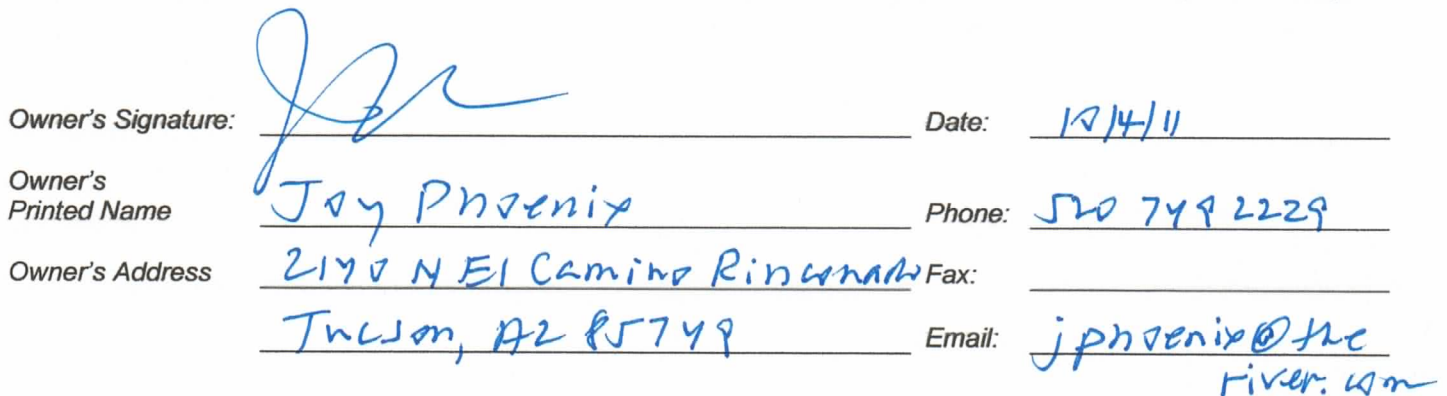 Owner's Signature:
Date: 10/4/11
Owner's
Printed Name Joy Phoenix
Phone: 520 749 2229
Owner's Address 2170 N El Camino Rinconado
Fax:
Tucson, AZ 85749
Email: jphoenix@the
river.com